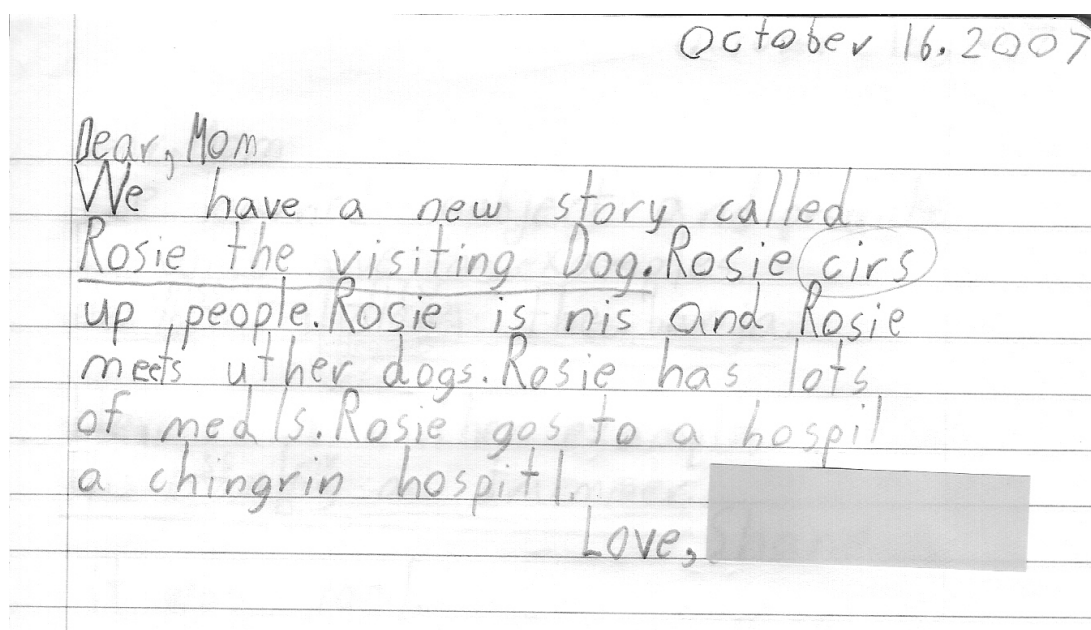 October 16. 2007
Dear, Mom
We have a new story called
Rosie the visiting Dog. Rosie cirs
up people. Rosie is nis and Rosie
meets uther dogs. Rosie has lots
of medls. Rosie gos to a hospil
a chingrin hospitl.
Love,